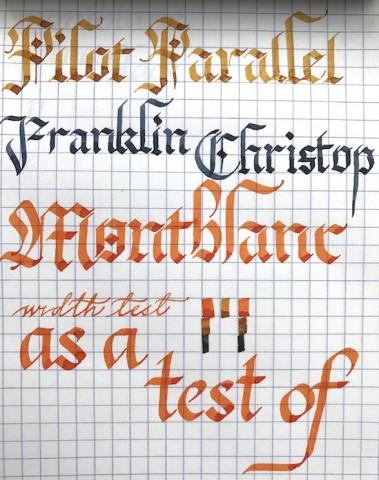 Pilot Parallel
Franklin Christop
Montblanc
width test
as a
test of